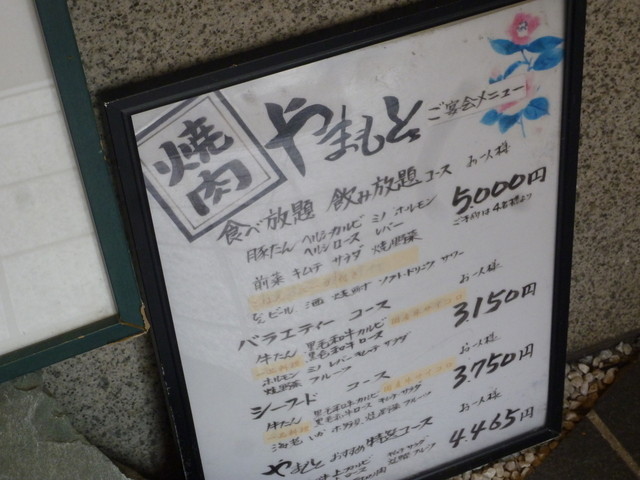 焼肉
やまもと ご宴会メニュー
食べ放題 飲み放題コース お一人様
5,000円
豚たん ヘルシーカルビ ミノ ホルモン
ヘルシーロース レバー
ご予約は4名様より
前菜 キムチ サラダ 焼野菜
生ビール 酒 焼酎 ソフトドリンク サワー
バラエティー コース お一人様
3,150円
牛たん 黒毛和牛カルビ
黒毛和牛ロース
一品料理
ホルモン ミノ レバー キムチ サラダ
焼野菜 フルーツ
シーフード コース お一人様
3,750円
牛たん 黒毛和牛カルビ
一品料理 黒毛和牛ロース キムチ サラダ
海老 いか ホタテ 焼野菜 フルーツ
やまもと おすすめ 特選コース お一人様
4,465円
キムチ サラダ